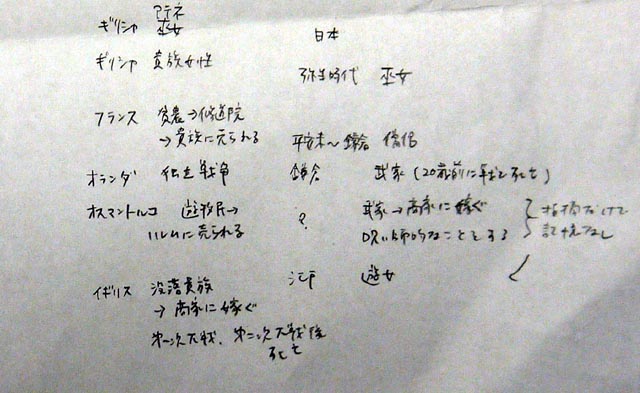 ギリシャ アテネ 巫女
ギリシャ 貴族女性
フランス 貧農→修道院
→貴族に売られる
オランダ 独立戦争
オスマントルコ 遊牧民→
ハレムに売られる
イギリス 没落貴族
→商家に嫁ぐ
第一次大戦、第二次大戦後
死亡
日本
弥生時代 巫女
平安末〜鎌倉 僧侶
鎌倉 武家(20歳前に戦で死亡)
? 武家→商家に嫁ぐ
呪い師的なことをする
江戸 遊女
指摘だけで
記憶なし